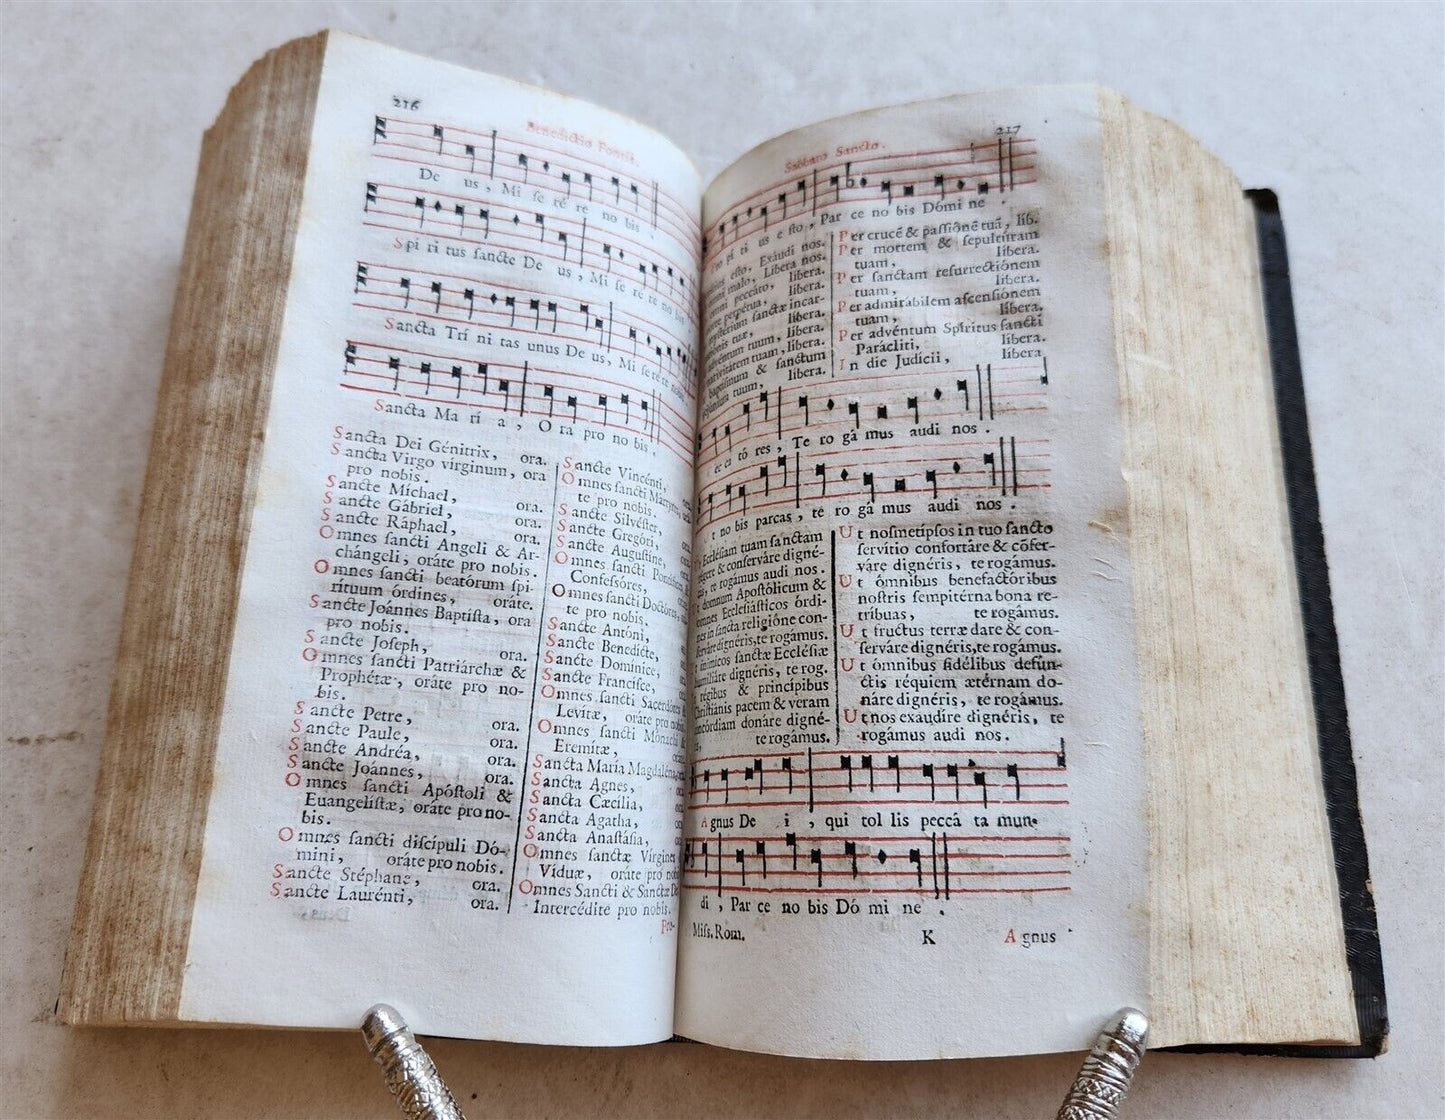 216
Benedictio Fontis.
De us, Mi se ré re no bis.
Spi ri tus sancte De us, Mi se re re no bis.
Sancta Trí ni tas unus De us, Mi se re re nobis.
Sancta Ma rí a, Ora pro no bis.
Sancta Dei Génitrix, ora.
Sancta Virgo virginum, ora
pro nobis.
Sancte Míchael, ora.
Sancte Gábriel, ora.
Sancte Ráphael, ora.
Omnes sancti Angeli & Ar-
chángeli, oráte pro nobis.
Omnes sancti beatórum spi-
rítuum órdines, oráte.
Sancte Joánnes Baptísta, ora
pro nobis.
Sancte Joseph, ora.
Omnes sancti Patriárchæ &
Prophétæ, oráte pro no-
bis.
Sancte Petre, ora.
Sancte Paule, ora.
Sancte Andréa, ora.
Sancte Joánnes, ora.
Omnes sancti Apóstoli &
Euangelístæ, oráte pro no-
bis.
Omnes sancti discípuli Dó-
mini, oráte pro nobis.
Sancte Stéphane, ora.
Sancte Laurénti, ora.
Sancte Vincénti,
Omnes sancti Martyres,
te pro nobis.
Sancte Silvéster,
Sancte Gregóri,
Sancte Augustíne,
Omnes sancti Pontífices
Confessóres,
Omnes sancti Doctóres,
te pro nobis.
Sancte Antóni,
Sancte Benedícte,
Sancte Domínice,
Sancte Francísce,
Omnes sancti Sacerdótes &
Levítæ, oráte pro nobis.
Omnes sancti Mónachi &
Eremítæ,
Sancta María Magdaléna, ora.
Sancta Agnes,
Sancta Cæcília,
Sancta Agatha,
Sancta Anastásia,
Omnes sanctæ Vírgines
Víduæ, oráte pro nobis
Omnes Sancti & Sanctæ De
Intercédite pro nobis.
Pro-
217
Sabbato Sancto.
Pro pí ti us e sto, Par ce no bis Dómi ne.
esto, Exáudi nos.
malo, Líbera nos.
peccáto, líbera.
perpétua, líbera.
mystérium sanctæ incar-
tuæ, líbera.
advéntum tuum, líbera.
nativitátem tuam, líbera.
baptísmum & sanctum
jejúnium tuum, líbera.
Per crucé & passiône tuâ, líb.
Per mortem & sepultúram
tuam, líbera.
Per sanctam resurrectiónem
tuam, líbera.
Per admirábilem ascensiónem
tuam, líbera.
Per advéntum Spíritus sancti
Parácliti, líbera.
In die Judícii, líbera
ec ca tó res, Te ro gá mus audi nos.
t nobis parcas, te ro gá mus audi nos.
Ecclésiam tuam sanctam
régere & conserváre digné-
ris, te rogámus audi nos.
t domnum Apostólicum &
omnes Ecclesiásticos órdi-
nes in sancta religióne con-
serváre dignéris, te rogámus.
t inimícos sanctæ Ecclésiæ
humiliáre dignéris, te rog.
régibus & princípibus
Christiánis pacem & veram
concórdiam donáre digné-
te rogámus.
Ut nosmetípsos in tuo sancto
servítio confortáre & cõser-
váre dignéris, te rogámus.
Ut ómnibus benefactóribus
nostris sempitérna bona re-
tríbuas, te rogámus.
Ut fructus terræ dare & con-
serváre dignéris, te rogámus.
Ut ómnibus fidélibus defún-
ctis réquiem ætérnam do-
náre dignéris, te rogámus.
Ut nos exaudíre dignéris, te
rogámus audi nos.
Agnus De i, qui tol lis peccá ta mun-
di, Par ce no bis Dó mi ne.
Miss. Rom. K Agnus